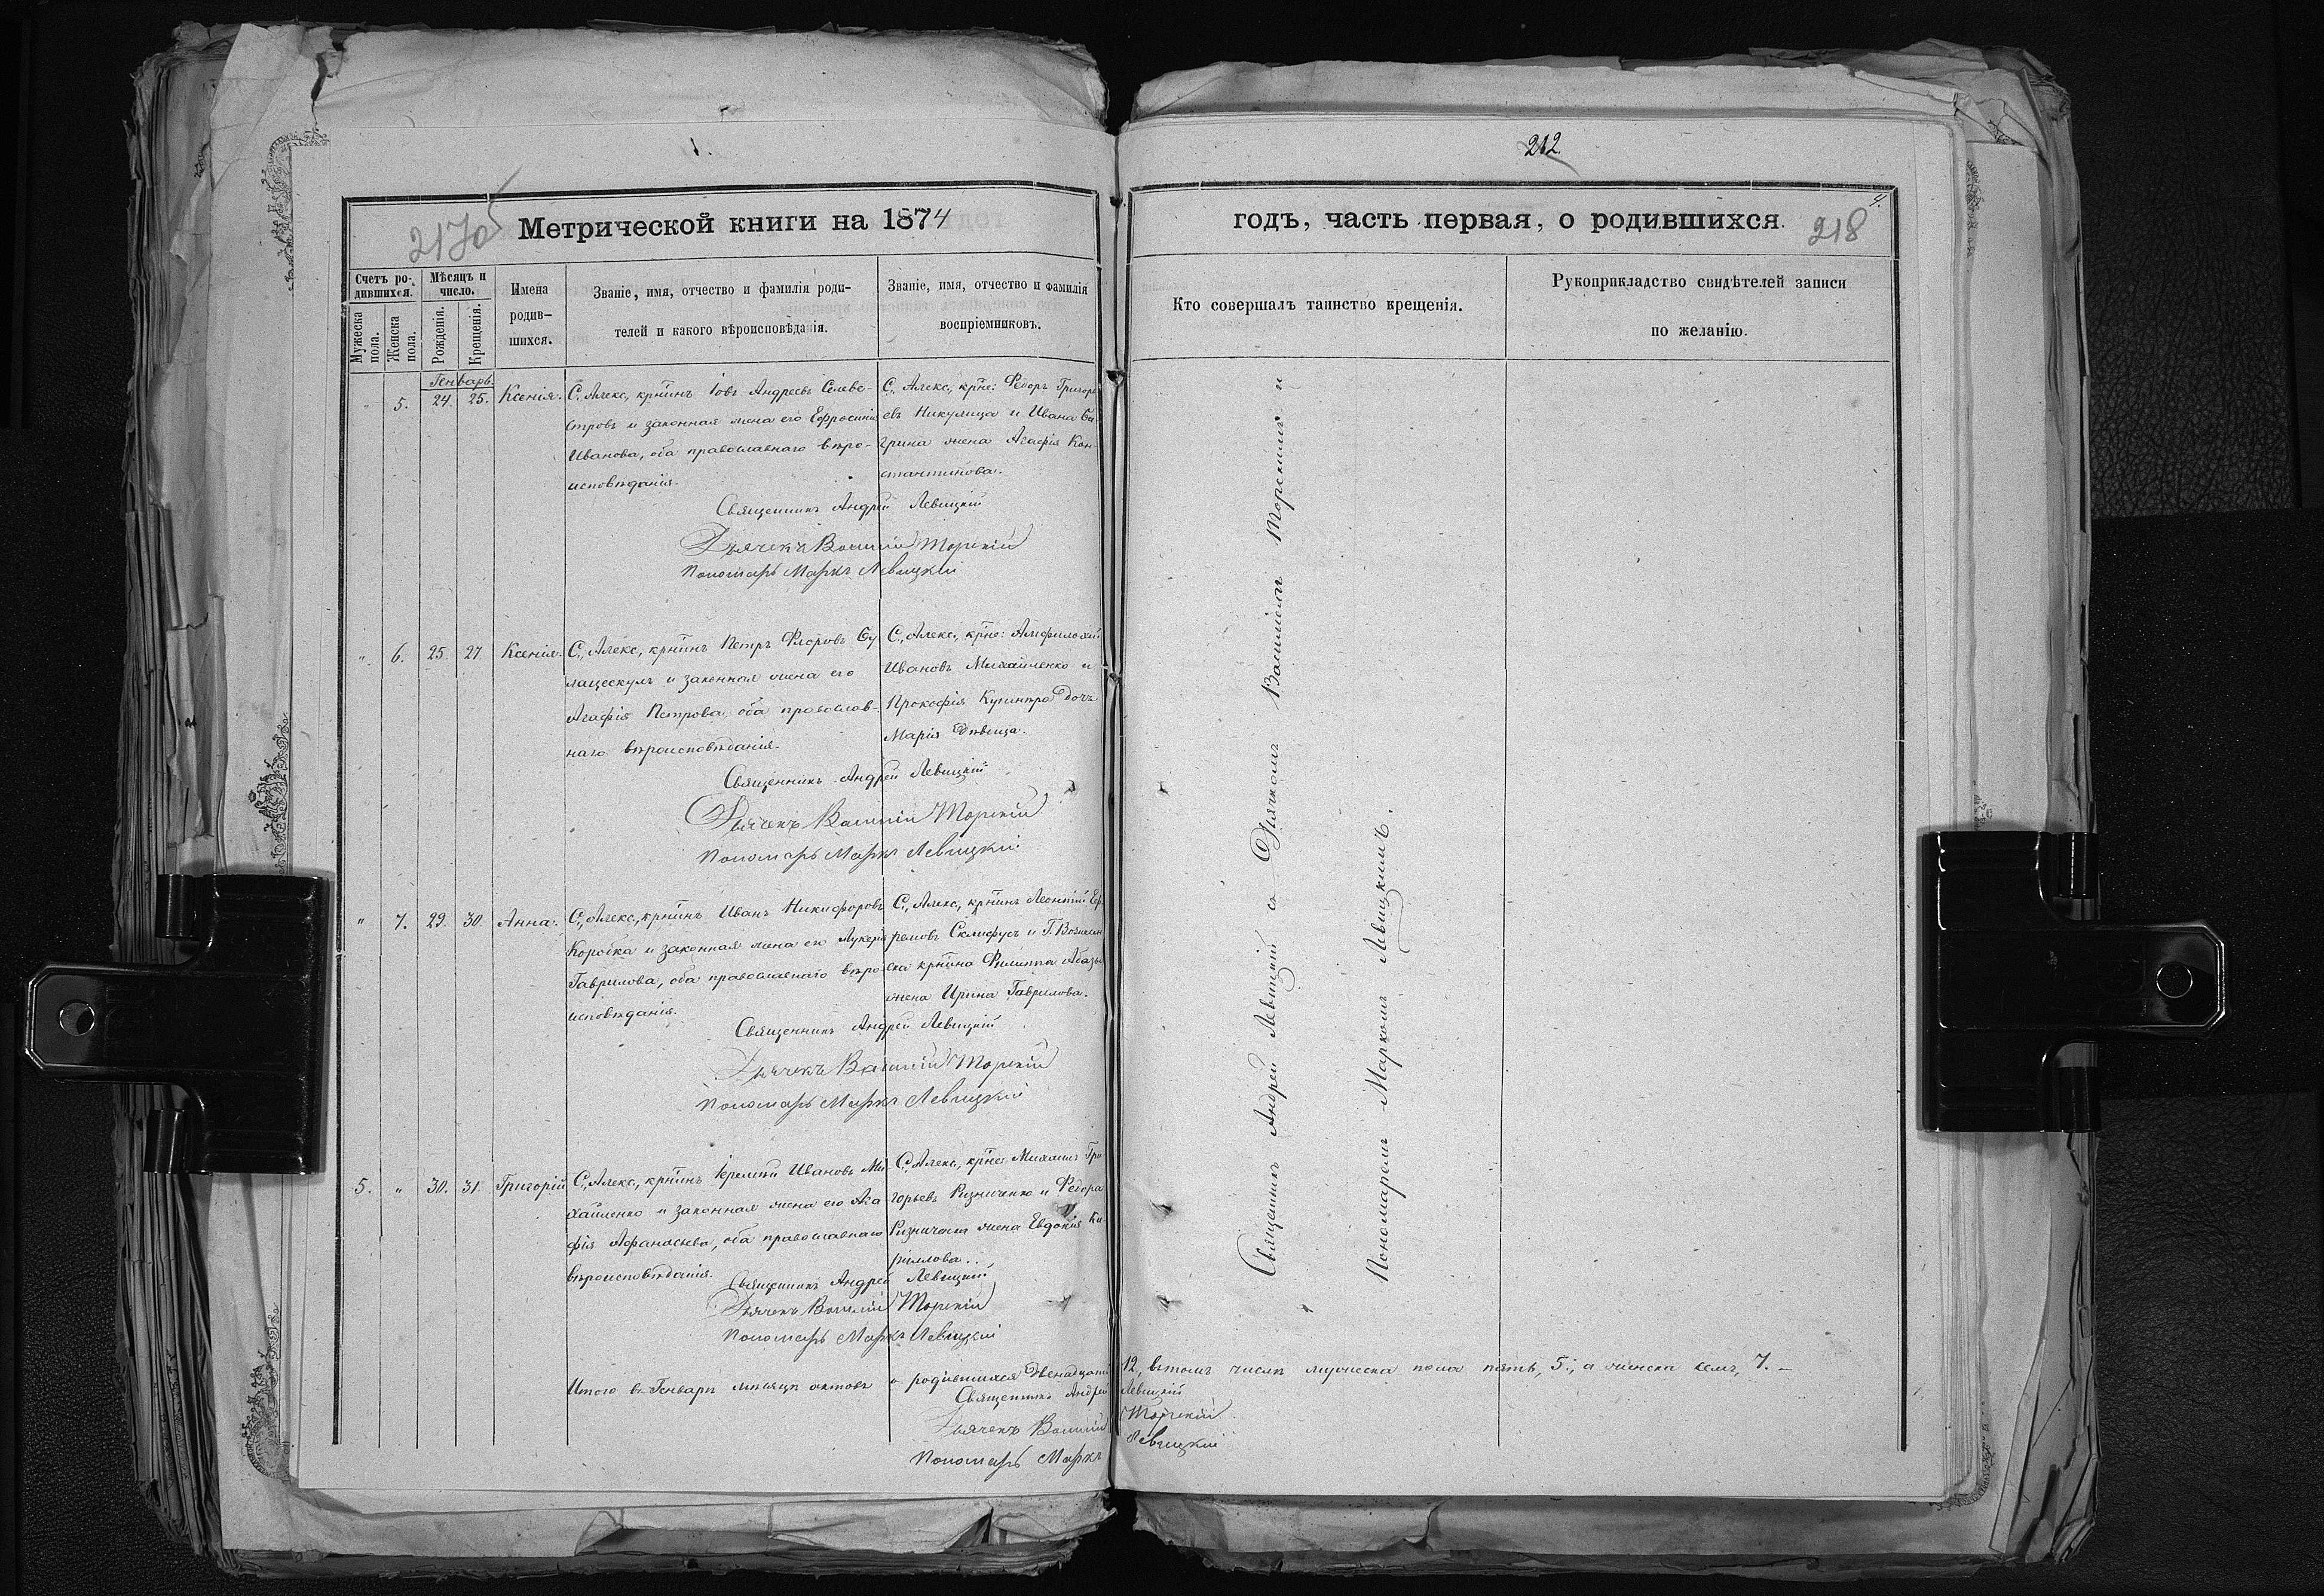 212.
2170
5
Метрической книги на 1874
годъ, часть первая, о родившихся.
218
4.
Счетъ родившихся.
Мужеска пола.
Женска пола.
Мѣсяцъ и число.
Рожденія.
Крещенія.
Имена родившихся.
Званіе, имя, отчество и фамилія родителей и какого вѣроисповѣданія.
Званіе, имя, отчество и фамилія воспріемниковъ.
Кто совершалъ таинство крещенія.
Рукоприкладство свидѣтелей записи по желанію.
Генварь.
" 5. 24. 25. Ксенія.
С. Алекс, кр-нинъ Іовъ Андреевъ Селеве-
стровъ и законная жена его Ефросинія
Иванова, оба православнаго вѣро-
исповѣданія.
С. Алекс, кр-не: Ѳедоръ Григорь-
евъ Никулица и Ивана
жена Агафія Кон-
стантинова.
Священникъ Андрей Левицкій
Дьячекъ Василій Торскій
Пономарь Маркъ Левицкій
" 6. 25. 27. Ксенія.
С. Алекс, кр-нинъ Петръ Флоровъ
и законная жена его
Агафія Петрова, оба православ-
наго вѣроисповѣданія.
С. Алекс, кр-не: Амфилохій
Ивановъ Михайленко и
Прокофія дочь
Марія дѣвица.
Священникъ Андрей Левицкій
Дьячекъ Василій Торскій
Пономарь Маркъ Левицкій
" 7. 29. 30. Анна.
С. Алекс, кр-нинъ Иванъ Никифоровъ
Коробка и законная жена его Лукерія
Гаврилова, оба православнаго вѣро-
исповѣданія.
С. Алекс, кр-нинъ Леонтій Еф-
ремовъ Склифусъ и Г.
кр-нина Филиппа
жена Ирина Гаврилова.
Священникъ Андрей Левицкій
Дьячекъ Василій Торскій
Пономарь Маркъ Левицкій
5. " 30. 31. Григорій
С. Алекс, кр-нинъ Іеремій Ивановъ Ми-
хайленко и законная жена его Ага-
фія Афанасьева, оба православнаго
вѣроисповѣданія.
С. Алекс, кр-не: Михаилъ Гри-
горьевъ Ризниченко и Ѳедора
жена Евдокія Ки-
риллова.
Священникъ Андрей Левицкій
Дьячекъ Василій Торскій
Пономарь Маркъ Левицкій
Итого въ Генварѣ мѣсяцѣ актовъ о родившихся двенадцать 12, въ томъ числѣ мужеска пола пять, 5; а женска семь, 7. –
Священникъ Андрей Левицкій
Дьячекъ Василій Торскій
Пономарь Маркъ Левицкій
Священникъ Андрей Левицкій съ Дьячкомъ Василіемъ Торскимъ и
Пономаремъ Маркомъ Левицкимъ.